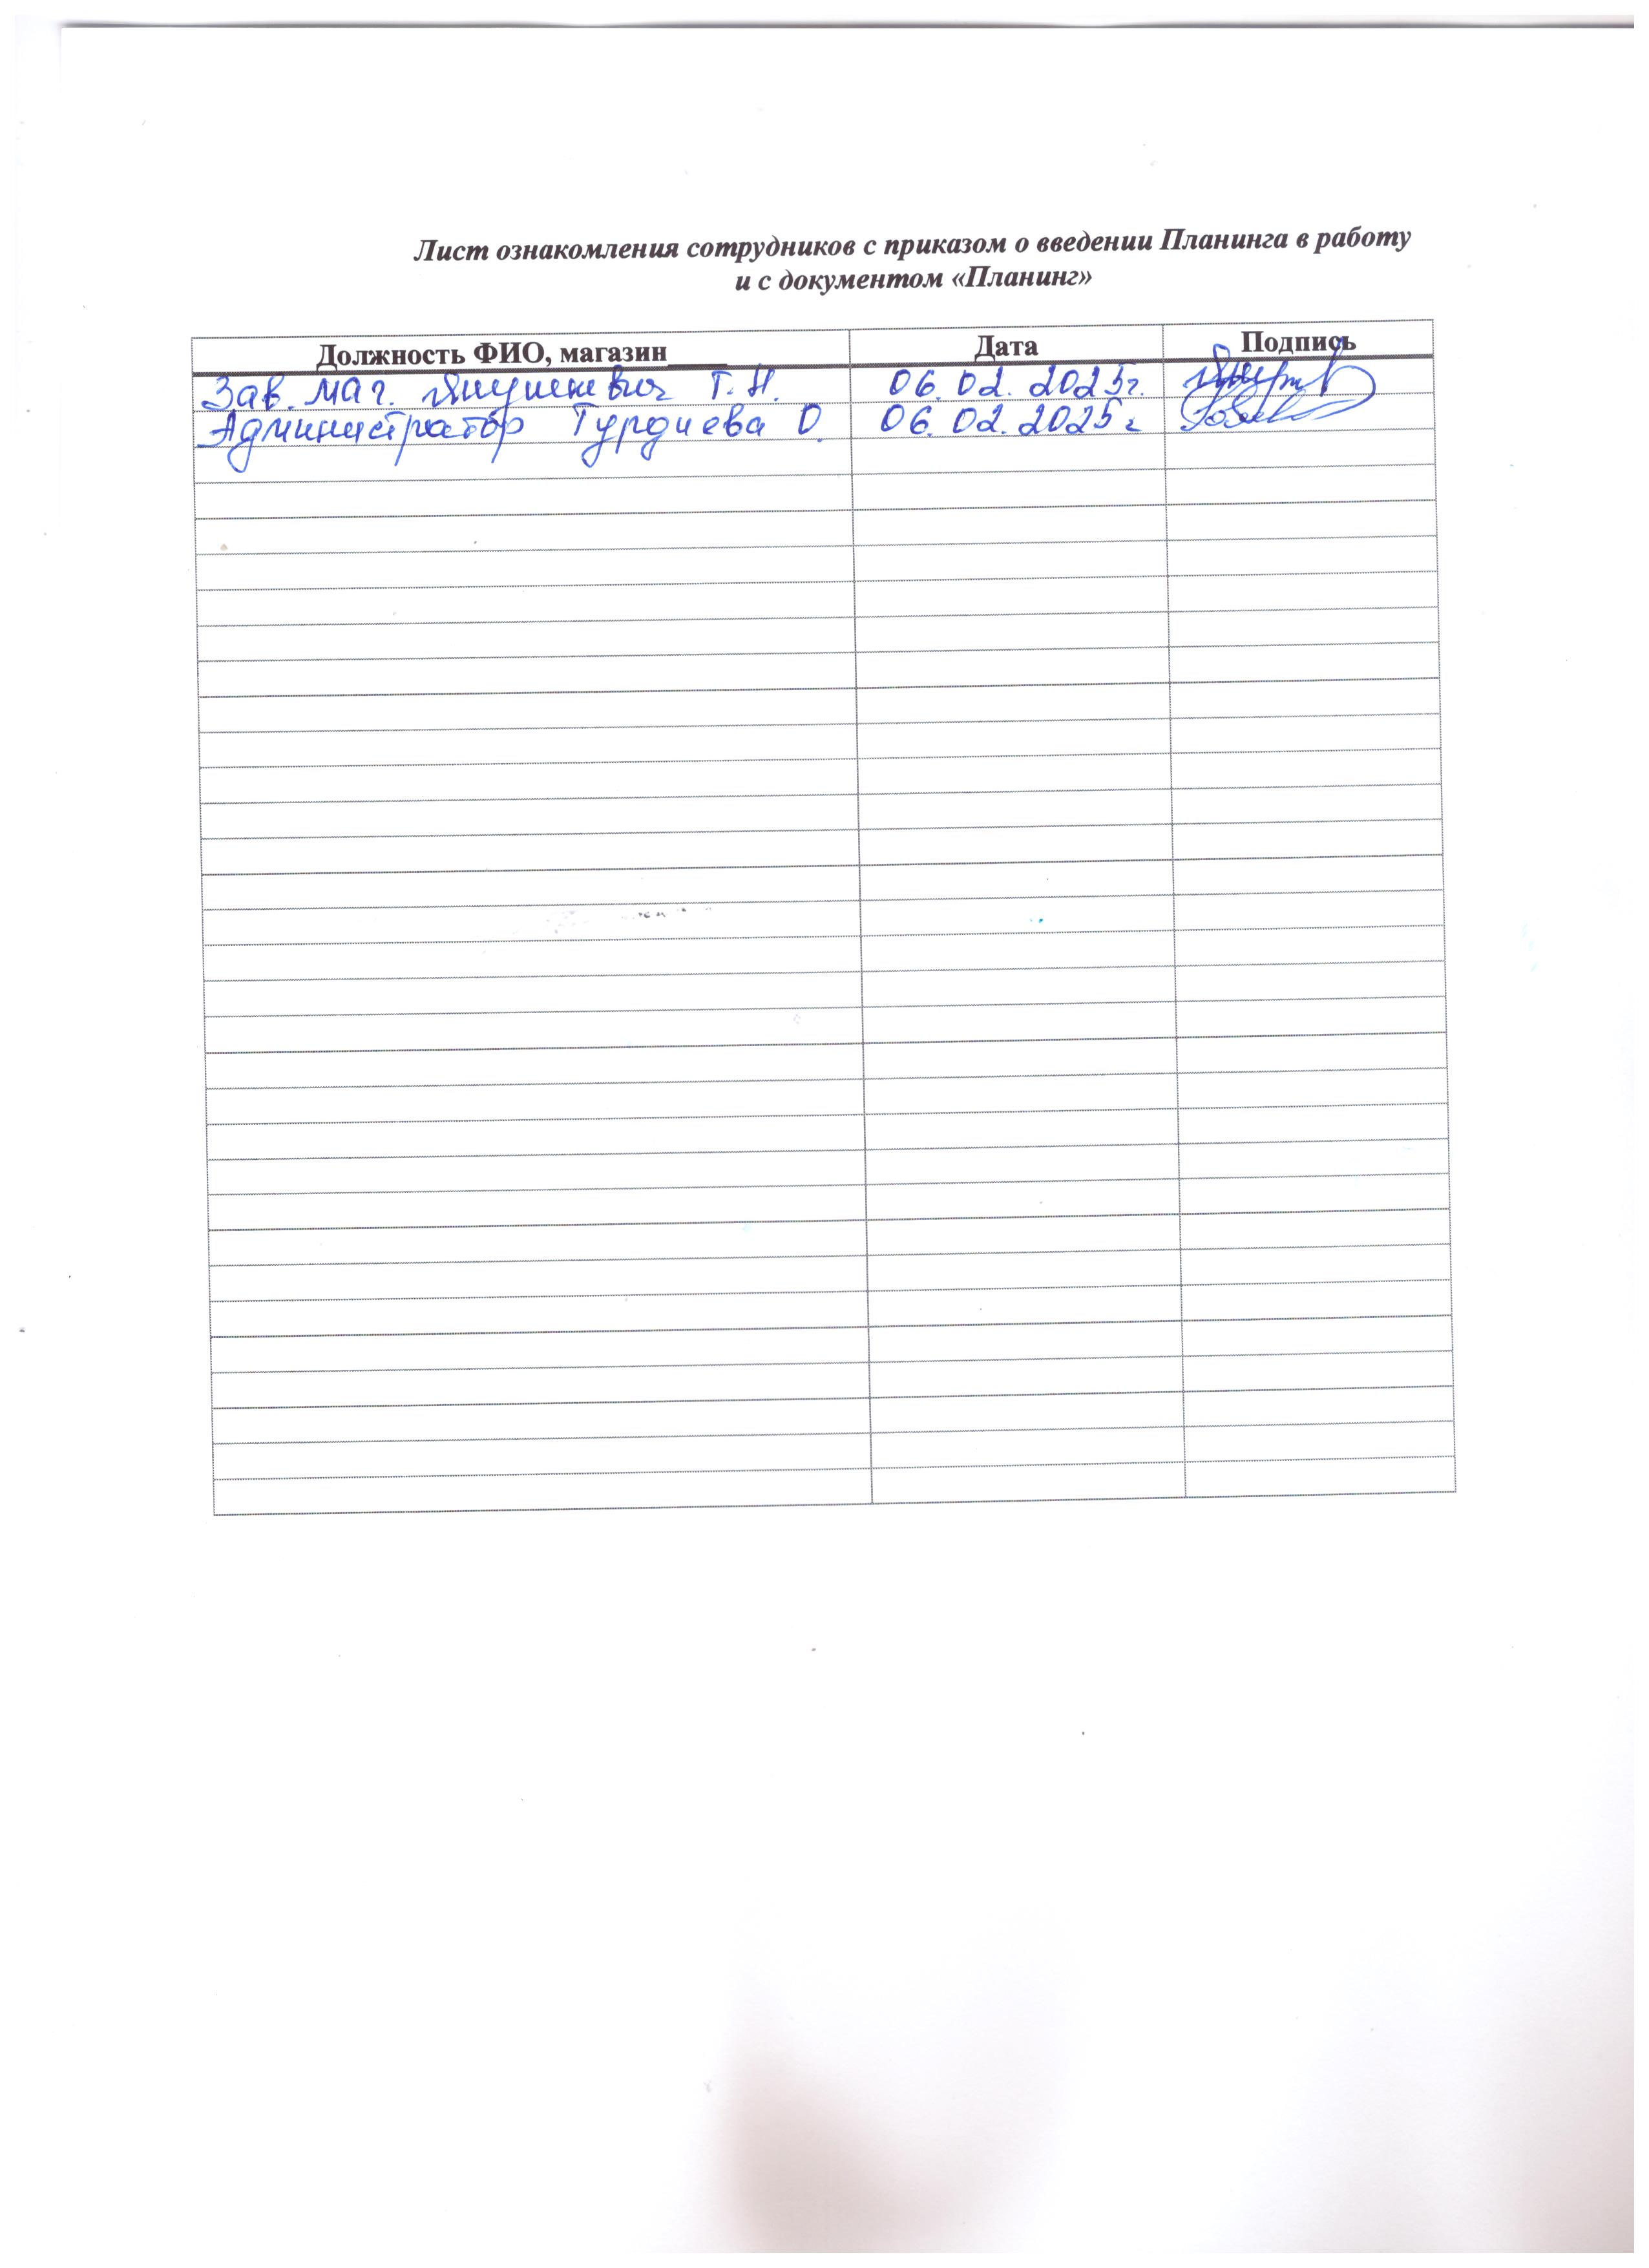 Лист ознакомления сотрудников с приказом о введении Планинга в работу
и с документом «Планинг»
Должность ФИО, магазин____ Дата Подпись
Зав. маг. Янушкевич Т. Н. 06. 02. 2025г.
Администратор Турдиева О. 06. 02. 2025г